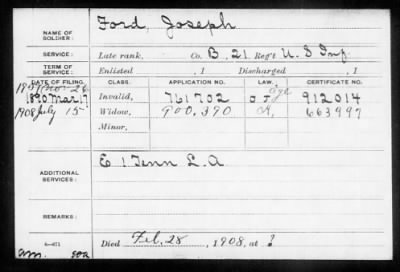 NAME OF SOLDIER: Ford, Joseph
SERVICE: Late rank, Co. B, 21 Reg't U.S Inf
TERM OF SERVICE: Enlisted , 1 Discharged , 1
DATE OF FILING. CLASS. APPLICATION NO. LAW. CERTIFICATE NO.
Nov. 26
1890 Mar 17 Invalid, 761702 age 912014
1908 July 15 Widow, 900,390 663997
Minor,
ADDITIONAL SERVICES: E 1 Tenn L.A.
REMARKS:
Died Feb. 28, 1908, at ?